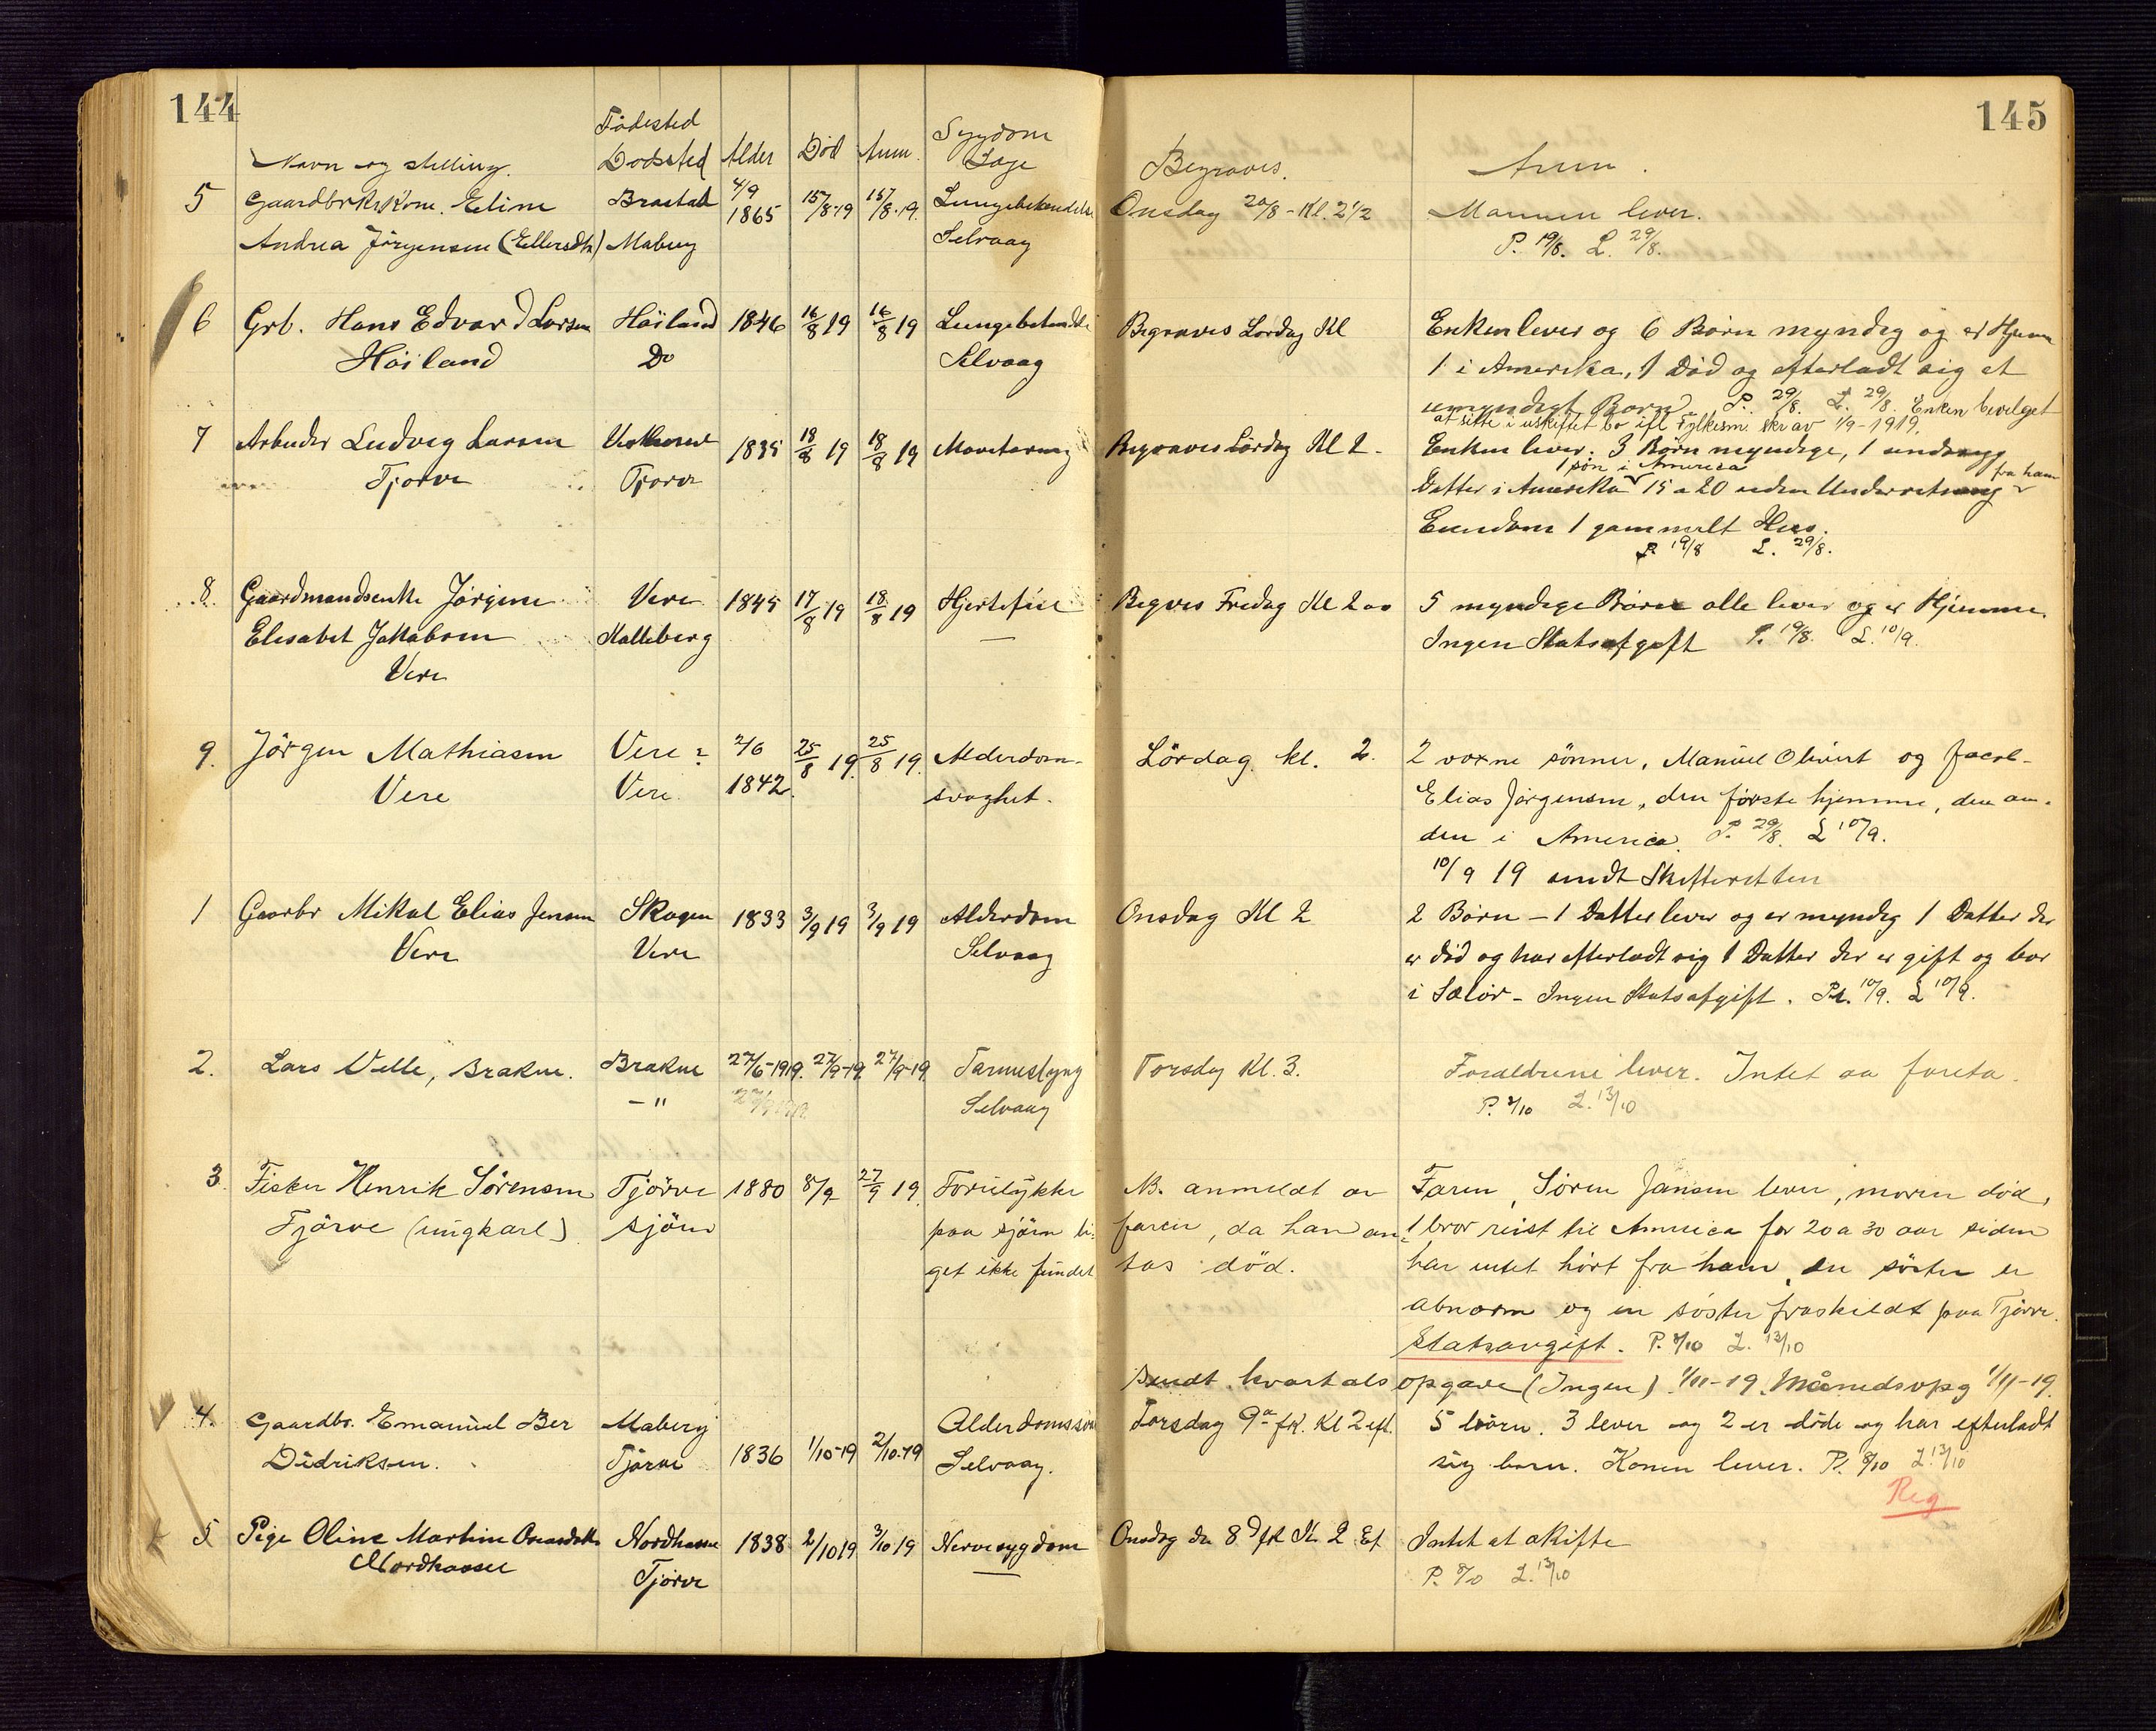 144
145
Födested
Navn og stilling. Dødsted Alder Död Anm. Sygdom Læge
Begraves. Anm.
5 Gaardbrkrkone Eline Brastad 4/9 1865 15/8-19 15/8-19. Lungebetendelse Onsdag 20/8 - Kl. 2 1/2 Mannen lever.
Andrea Jörgensen (Ellersdtr) Maberg Selvaag P. 19/8. L. 29/8.
6 Grb. Hans Edvard Larsen Höiland 1846 16/8 19 16/8 19 Lungebetendelse Begraves Lördag Kl Enken lever og 6 Börn myndig og er Hjemme
Höiland Do Selvaag 1 i Amerika, 1 Död og efterladt sig et
umyndigt Barn P. 29/8. L. 29/8. Enken bevilget
at sitte i uskiftet bo ifl Fylkesm. skr av 1/9-1919.
7 Arbeider Ludvig Larsen 1835 18/8 19 18/8 19 Mavetæring Begraves Lördag Kl 2 - Enken lever. 3 Börn myndige, 1
1 sön i America fra ham
Tjorve Tjorve Datter i Amerika 15 a 20 uden Underretning
Eiendom 1 gammelt Hus.
P. 19/8 L. 29/8.
8. Gaardmandsenke Jörgine Vere 1845 17/8 19 18/8 19 Hjertefeil Begves Fredag Kl 2 00 5 myndige Börn alle lever og er Hjemme.
Elesabet Jakobsen Kalleberg Ingen Statsafgift P. 19/8. L. 10/9.
Vere
9. Jörgen Mathiasen Vere ? 2/6 25/8 19. 25/8 19. Alderdom- Lördag kl. 2. 2 voxne sönner, Manuel Olivert og Jacob-
Vere Vere. 1842. svaghet. Elias Jörgensen, den förste hjemme, den an-
den i America. P. 29/8. L 10/9.
10/9 19 sendt Skifteretten
1 Gaarbr Mikal Elias Jensen Skagen 1833 3/9 19 3/9 19 Alderdom Onsdag Kl 2 2 Börn - 1 Datter lever og er myndig 1 Datter der
Vere Vere Selvaag er död og har efterladt sig 1 Datter der er gift og bor
i Sælör - Ingen Statsafgift. P. 10/9. L 10/9.
2. Lars Velle, Brakne. Brakne 27/6-1919. 27/9-19. 27/9-19. Tarmeslyng Torsdag Kl. 3. Forældrene lever. Intet aa foreta.
- " Selvaag P. 7/10 L. 13/10
3. Fisker Henrik Sörensen Tjörve 1880 8/9 27/9 19. Forulykke NB. anmeldt av Faren, Sören Jansen lever, moren död,
Tjörve (ungkarl) sjöen paa sjöen li- faren, da han an- 1 bror reist til America for 20 a 30 aar siden
get ikke fundet tas död. har intet hört fra ham, en söster er
abnorm og en söster fraskildt paa Tjörve.
Statsavgift. P. 7/10 L. 13/10
Sendt kvartalsopgave (Ingen) 1/10-19. Månedsopg 1/11-19.
4. Gaardbr. Emanuel Ber Maberg 1836 1/10-19 2/10-19 Alderdomssv Torsdag 9de fk. Kl 2 eft. 5 börn. 3 lever og 2 er döde og har efterladt
Didriksen. Tjörve Selvaag. sig barn. Konen lever. P. 8/10 L. 13/10
Reg
5 Pige Oline Martine Nordhasse 1838 2/10 19 3/10 19 Nervesygdom Onsdag den 8d fk Kl. 2 Et Intet at skifte
Nordhassel Tjorve P. 8/10 L. 13/10